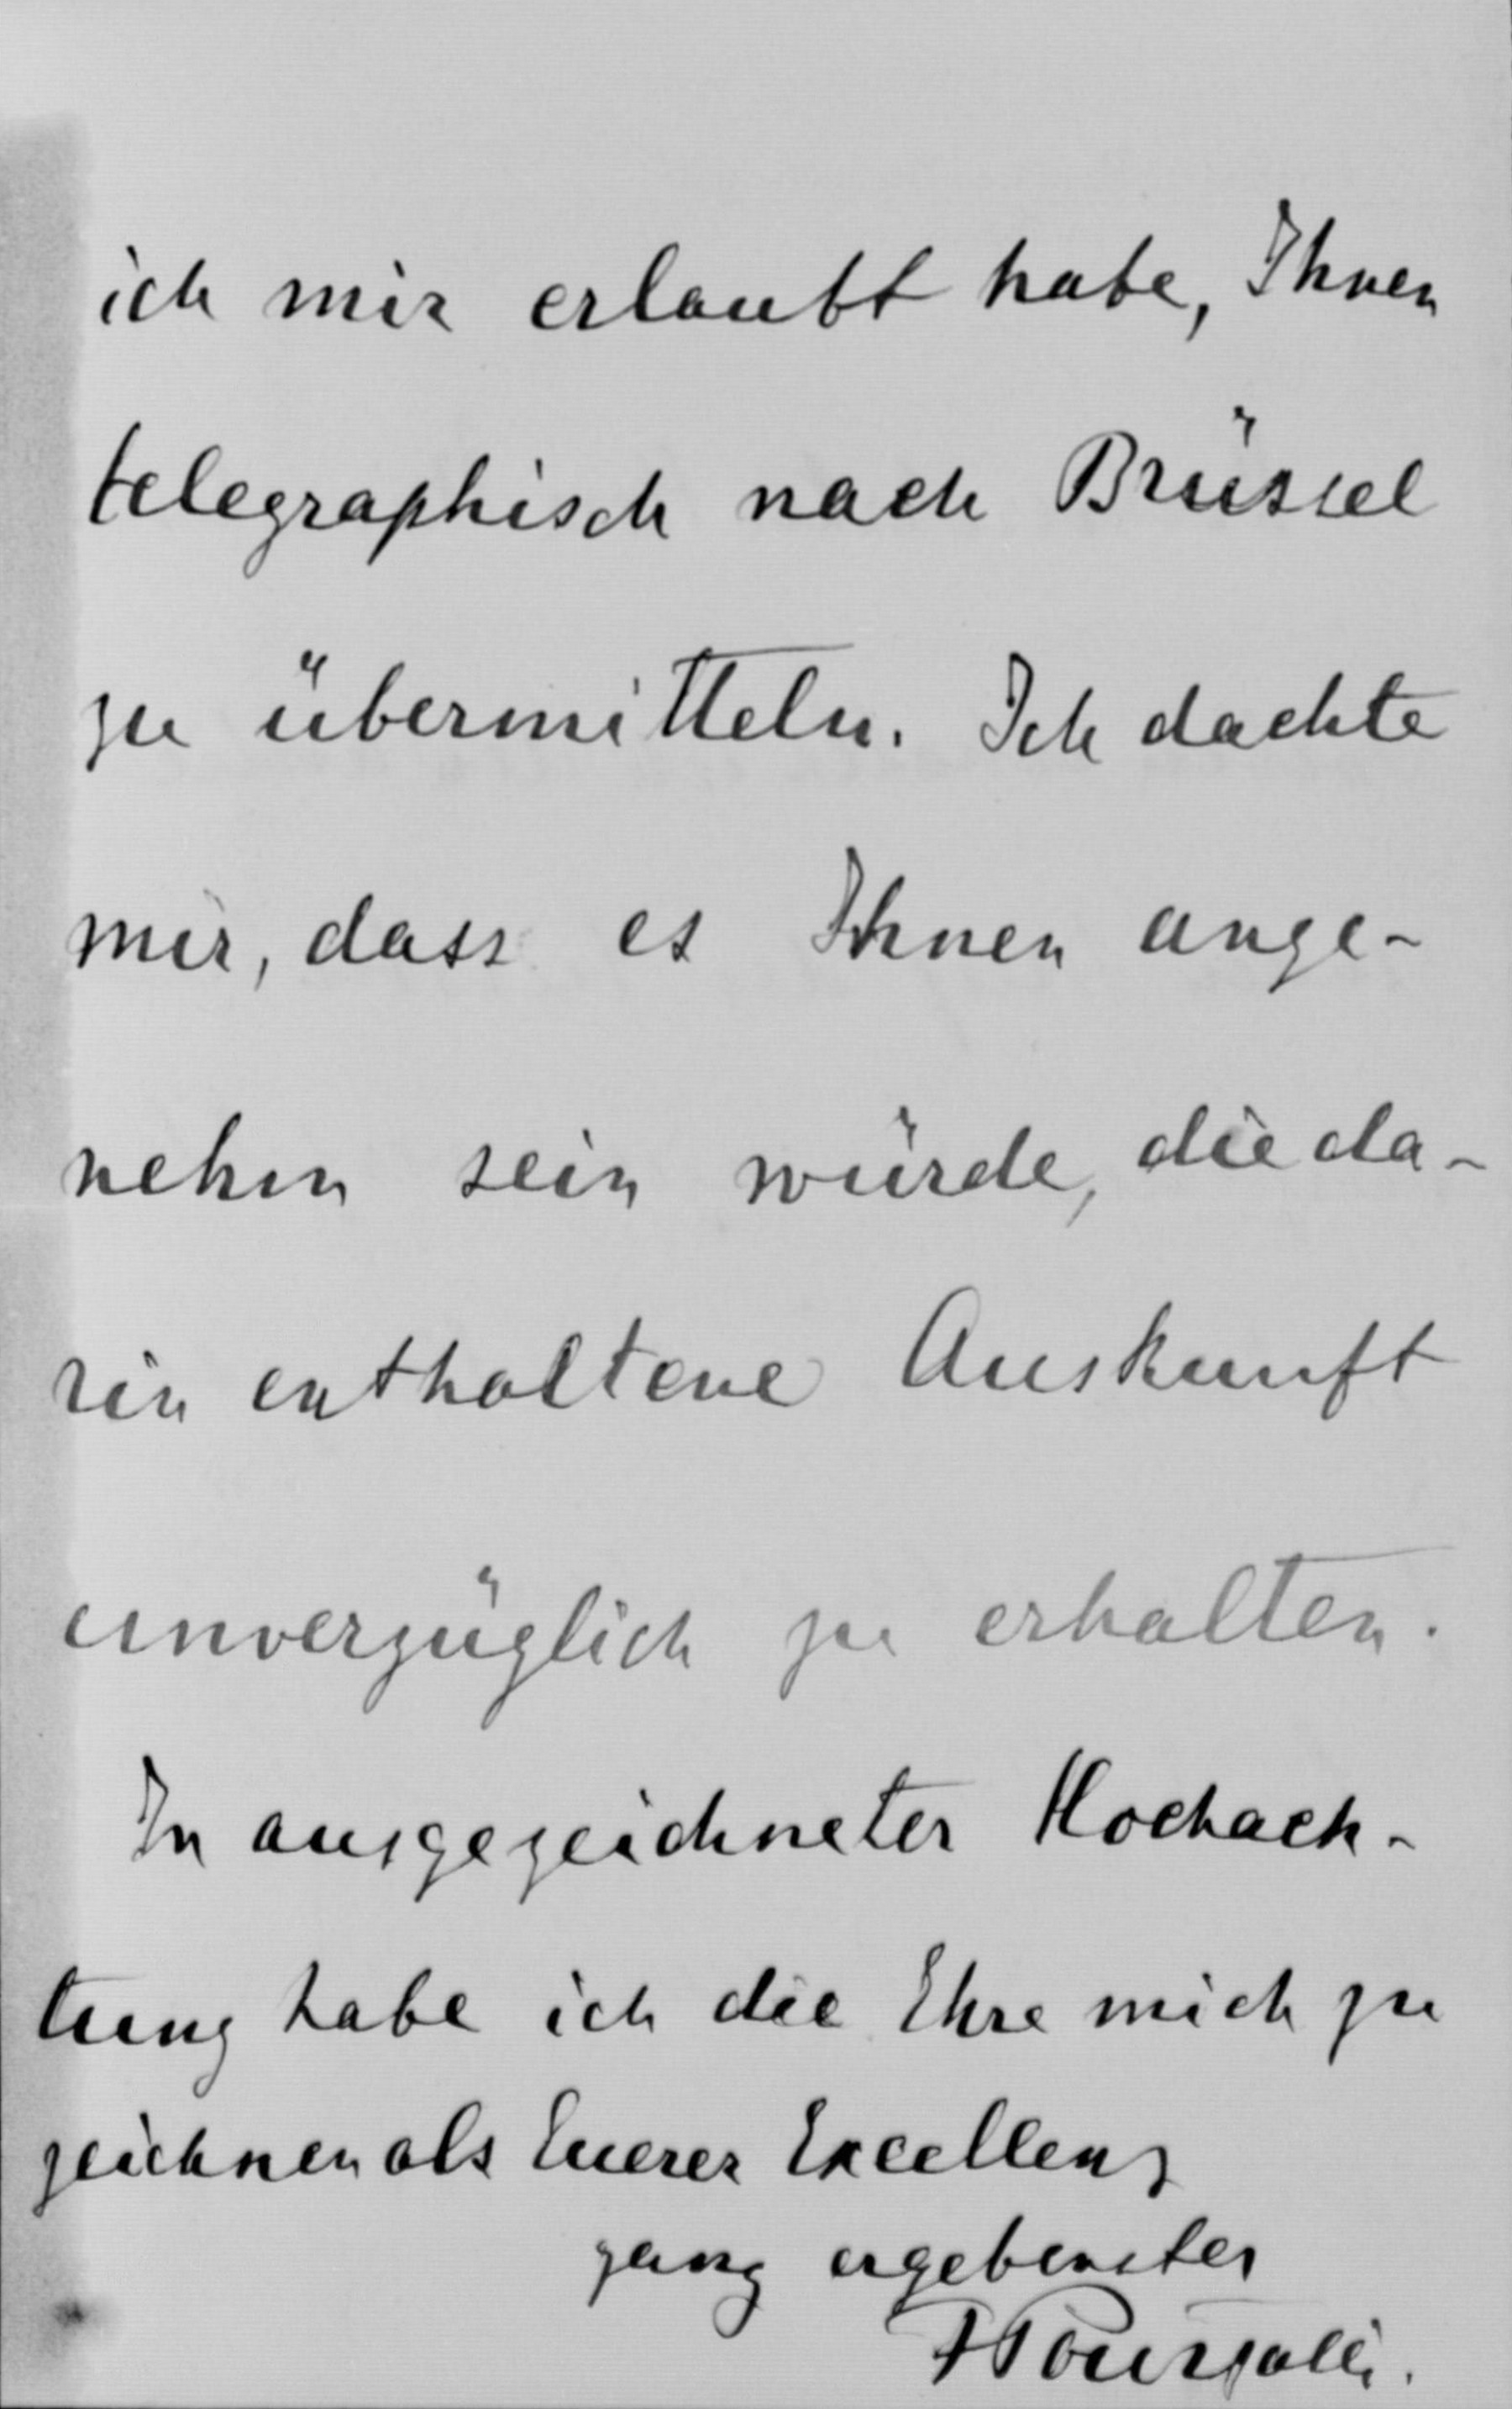 ich mir erlaubt habe, Ihnen
telegraphisch nach Brüssel
zu übermitteln. Ich dachte
mir, dass es Ihnen ange-
nehm sein würde, die da-
rin enthaltene Auskunft
unverzüglich zu erhalten.
In ausgezeichneter Hochach-
tung habe ich die Ehre mich zu
zeichnen als Euerer Excellenz
ganz ergebenster
FPourtalès.